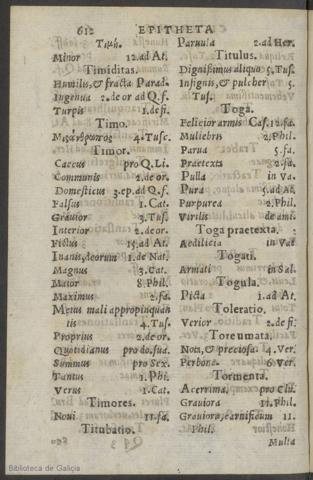 612 EPITHETA
Τιμή.
Minor 12.ad At.
Timiditas.
Humilis, & fracta Parad.
Ingenua 2.de or ad Q.f.
Turpis 1.de fi.
Timo.
Μισάνθρωπος 4.Tusc.
Timor.
Caecus pro Q.Li.
Communis 2.de or.
Domesticus 3.ep.ad Q.f.
Falsus 1.Cat.
Grauior 3.Tus.
Interior 2.de or.
Fictus 15.ad At.
Inanis, deorum 1.de Nat.
Magnus 3.Cat.
Maior 8.Phil.
Maximus 2.fa.
Metus mali appropinquan
tis 4.Tus.
Proprius 2.de or.
Quotidianus pro do.sua.
Summus pro Sex.
Tantus 1.Phi.
Verus 1.Cat.
Timores.
Noui 11.fa.
Titubatio.
Paruula 2.ad Her.
Titulus.
Dignissimus aliquo 5.Tus.
Insignis, & pulcher 5.
Tus.
Toga.
Felicior armis Cas.12.fa.
Muliebris 2.Phil.
Parua 5.fa.
Praetexta 2.fa.
Pulla in Va.
Pura 5.ad At.
Purpurea 2.Phil.
Virilis de ami.
Toga praetexta.
Aedilicia in Vat
Togati.
Armati in Sal.
Togula.
Picta 1.ad At.
Toleratio.
Verior 2.de fi.
Toreumata.
Nota, & preciosa 4.Ver.
Perbona 6.Ver.
Tormenta.
Acerrima pro Clu.
Grauiora 11.Phil.
Grauiora, carnificum 11.
Phil.
Multa
Biblioteca de Galicia